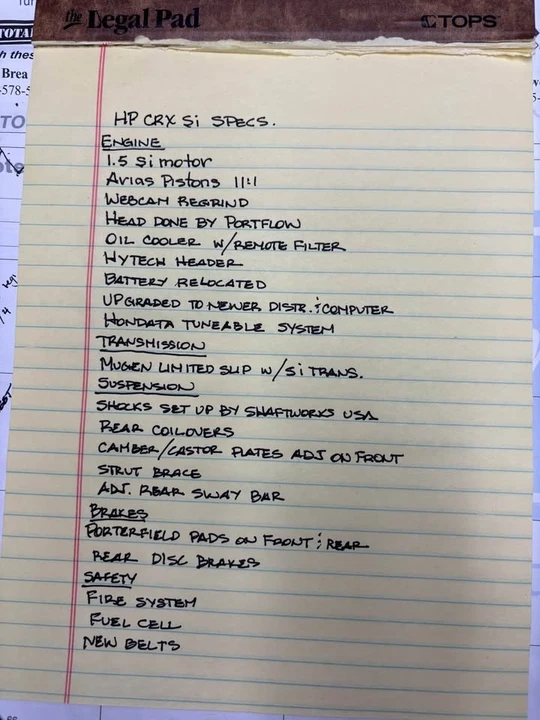 the Legal Pad
TOPS
TOTAL
Brea
HP CRX Si SPECS.
ENGINE
1.5 Si motor
Arias Pistons 11:1
WEBCAM REGRIND
HEAD DONE BY PORTFLOW
OIL COOLER W/REMOTE FILTER
HYTECH HEADER
BATTERY RELOCATED
UPGRADED TO NEWER DISTR. & COMPUTER
HONDATA TUNEABLE SYSTEM
TRANSMISSION
MUGEN LIMITED SLIP W/Si TRANS.
SUSPENSION
SHOCKS SET UP BY SHAFTWORKS USA
REAR COILOVERS
CAMBER/CASTOR PLATES ADJ ON FRONT
STRUT BRACE
ADJ. REAR SWAY BAR
BRAKES
PORTERFIELD PADS ON FRONT & REAR
REAR DISC BRAKES
SAFETY
FIRE SYSTEM
FUEL CELL
NEW BELTS